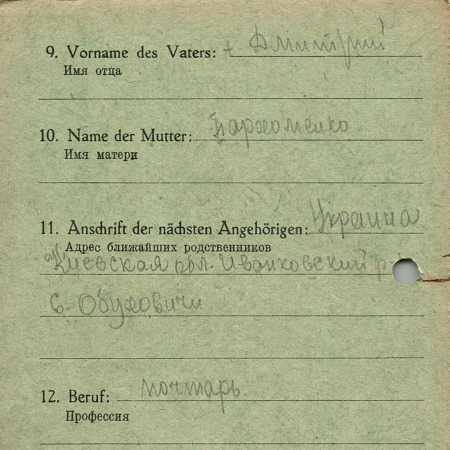 9. Vorname des Vaters: + Дмитрий
Имя отца
10. Name der Mutter: Пархоменко
Имя матери
11. Anschrift der nächsten Angehörigen: Украина
Адрес ближайших родственников
Киевская обл. Иванковский р-
с. Обуховичи
12. Beruf: почтарь
Профессия